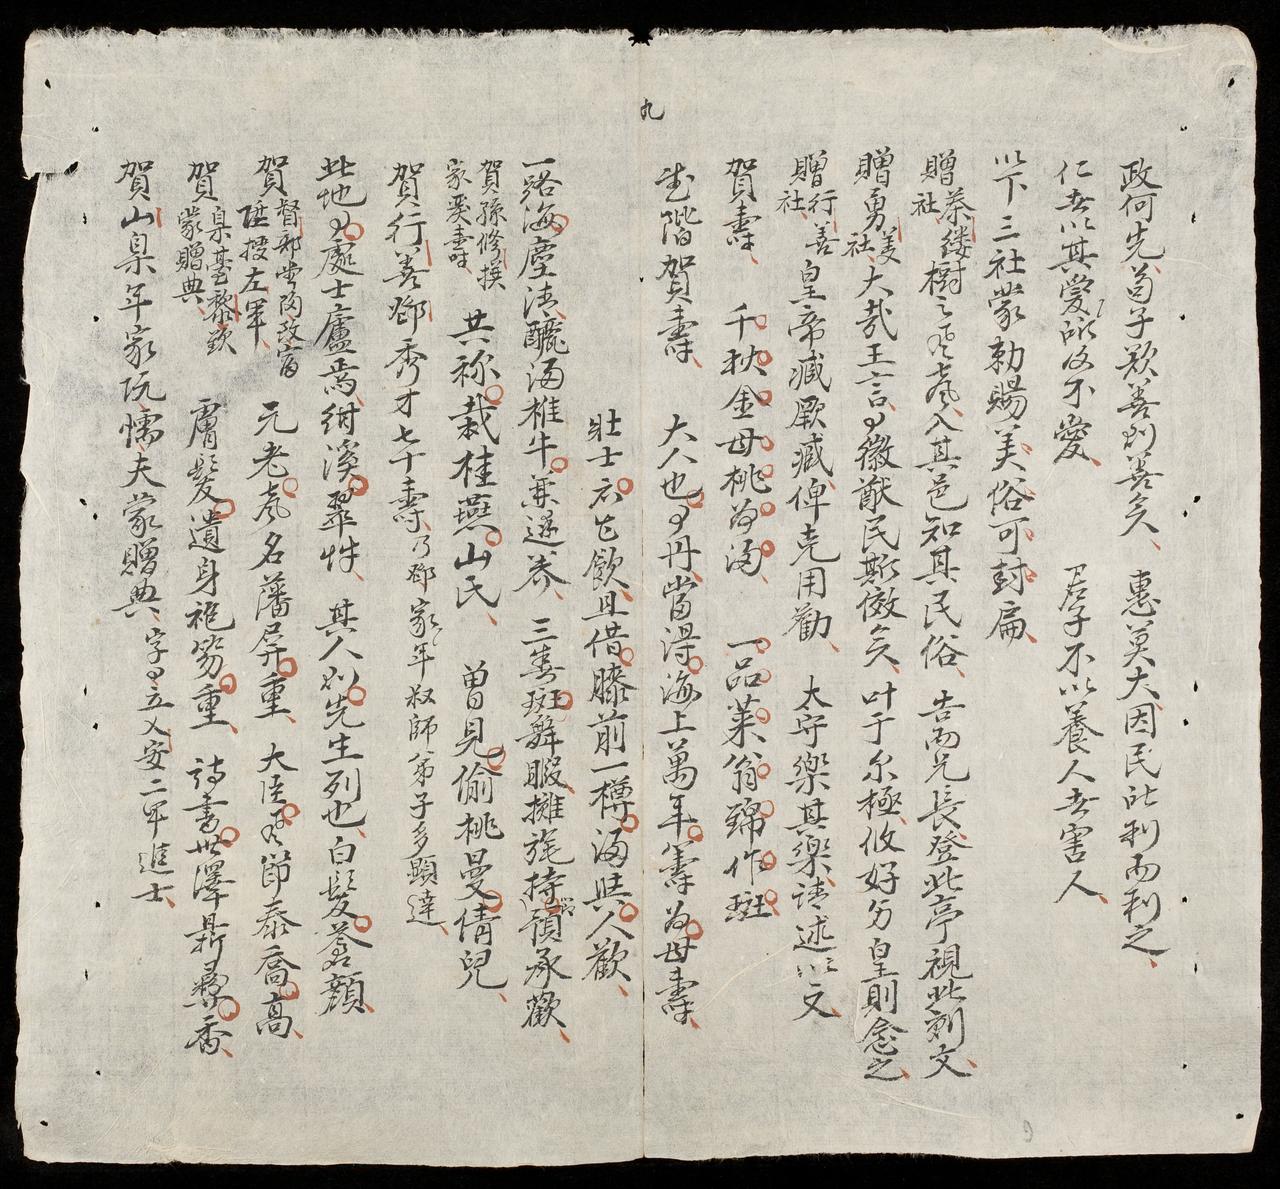 九
政何先苟子欲善則善矣 惠莫大因民所利而利之
仁者以其愛所及不愛 君子不以養人者害人
以下三社蒙勅賜美俗可封扁
贈社 樹之風聲入其邑知其民俗 告而兄長登此亭視此刻文
贈勇美社 大哉王言徽猷民斯傚矣 叶于尔極攸好多皇則念之
贈行善社 皇帝臧厥臧俾克用勸 太守樂其樂請述以文
賀壽 千秋金母桃為酒 一品萊翁錦作斑
堂階賀壽 大人也丹當得海上萬年籌為母壽
壯士能飲且借膝前一樽酒與人歡
一路海塵清釃酒椎牛兼遂養 三春斑舞暇擁旄持節預承歡
賀孫修撰家嚴壽 共称栽桂燕山氏 曾見偷桃曼倩兒
賀行善鄧秀才七十壽 乃鄧家年叔師弟子多顯達
此地處士廬焉紺溪翠 其人列先生列也白髮蒼顏
賀督部堂陞授左軍 元老風名藩屏重 大臣風節泰喬高
賀臬臺黎欽蒙贈典 膚髮遺身袍笏重 詩書世澤鼎彝香
賀山臬年家阮懦夫蒙贈典 字立 安二甲進士